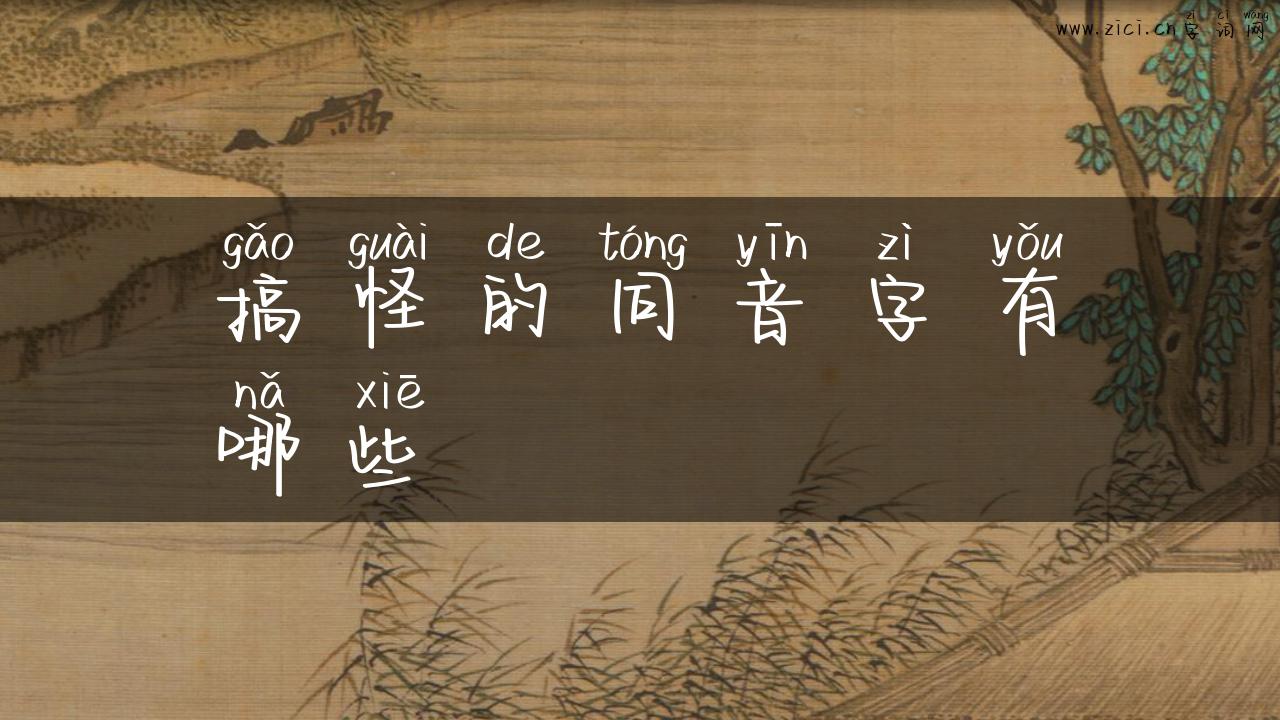 zì cí wǎng
www.zici.cn字词网
gǎo guài de tóng yīn zì yǒu
搞怪的同音字有
nǎ xiē
哪些